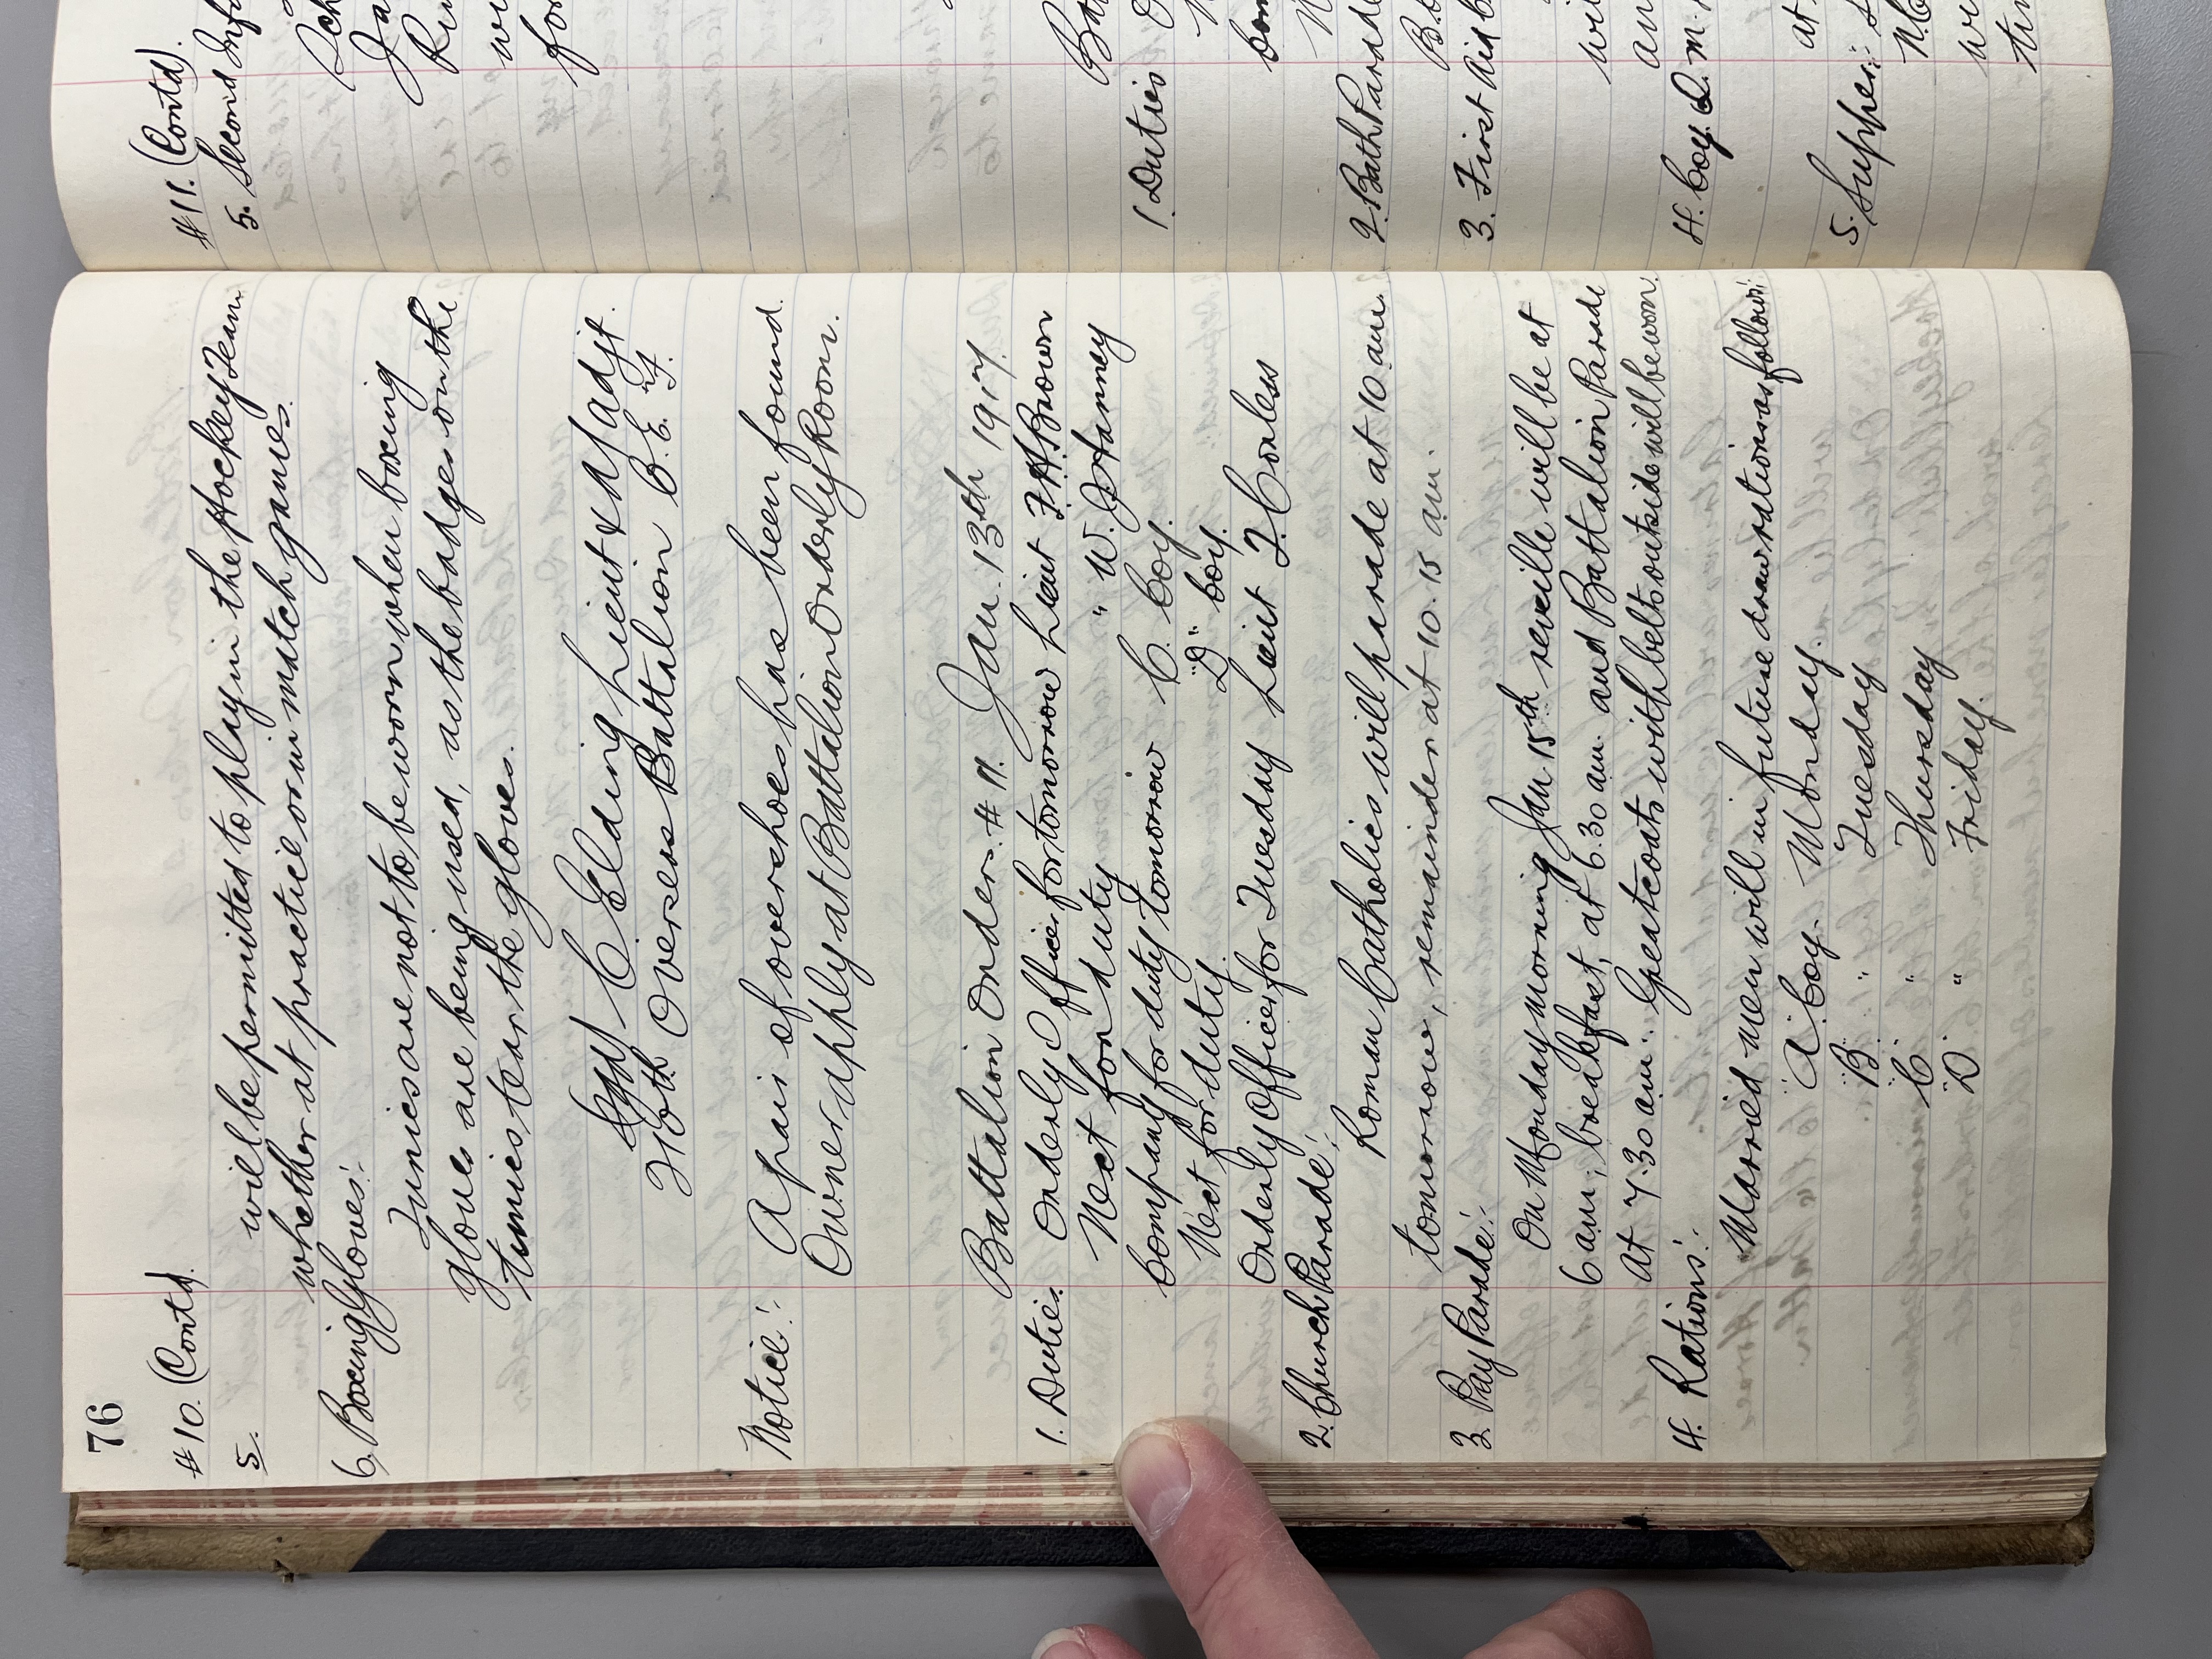 76
#10. (Contd).
5. will be permitted to play in the Hockey Team
whether at practice or in match games.
6. Boxing Gloves:-
Tunics are not to be worn when boxing
gloves are being used, as the badges on the
tunics tear the gloves.
Sgd C. Elding Lieut & A/adjt.
210th Overseas Battalion C.E.F.
Notice:- A pair of overshoes has been found
Owner apply at Battalion Orderly Room.
Battalion Orders. #11. Jan. 13th 1917.
1. Duties. Orderly Officer for tomorrow Lieut F.H. Brown
Next for duty " W.
Company for duty tomorrow C. Coy.
Next for duty. "D" Coy.
Orderly Officer for Tuesday Lieut J. Corless
2. Church Parade:-
Roman Catholics will parade at 10 am.
tomorrow, remainder at 10.15 am.
3. Pay Parade:-
On Monday morning Jan 15th reveille will be at
6 am; breakfast, at 6.30 am. and Battalion Parade
at 7.30 am. Greatcoats with belts outside will be worn.
4. Rations:-
Married men will in future draw rations as follows:-
"A" Coy. Monday.
"B" " Tuesday
"C" " Thursday
"D" " Friday.
#11. (Contd).
5. Second
for
1. Duties
2. Bath Parade
3. First Aid
4. Coy. Q.M.
at
5. Supper:-